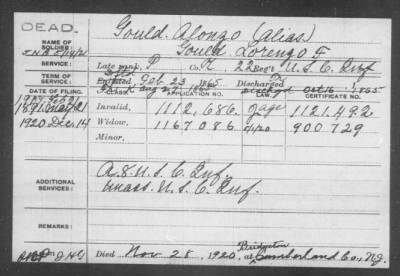 DEAD.
NAME OF SOLDIER:
Gould, Alonzo (alias)
Gould, Lorenzo F
SERVICE:
Late rank, P Co. K, 22 Reg't U.S.C. Inf
TERM OF SERVICE:
Enrolled Feb 23, 1865
Discharged Oct 16, 1865
DATE OF FILING.
CLASS.
APPLICATION NO.
LAW.
CERTIFICATE NO.
1891
Invalid,
1112,686.
1121,492
1920 Dec. 14
Widow,
1167086
900729
Minor,
ADDITIONAL SERVICES:
U.S.C. Inf.
Unass. U.S.C. Inf.
REMARKS:
Died Nov 28, 1920, at Bridgeton Cumberland Co., N.J.